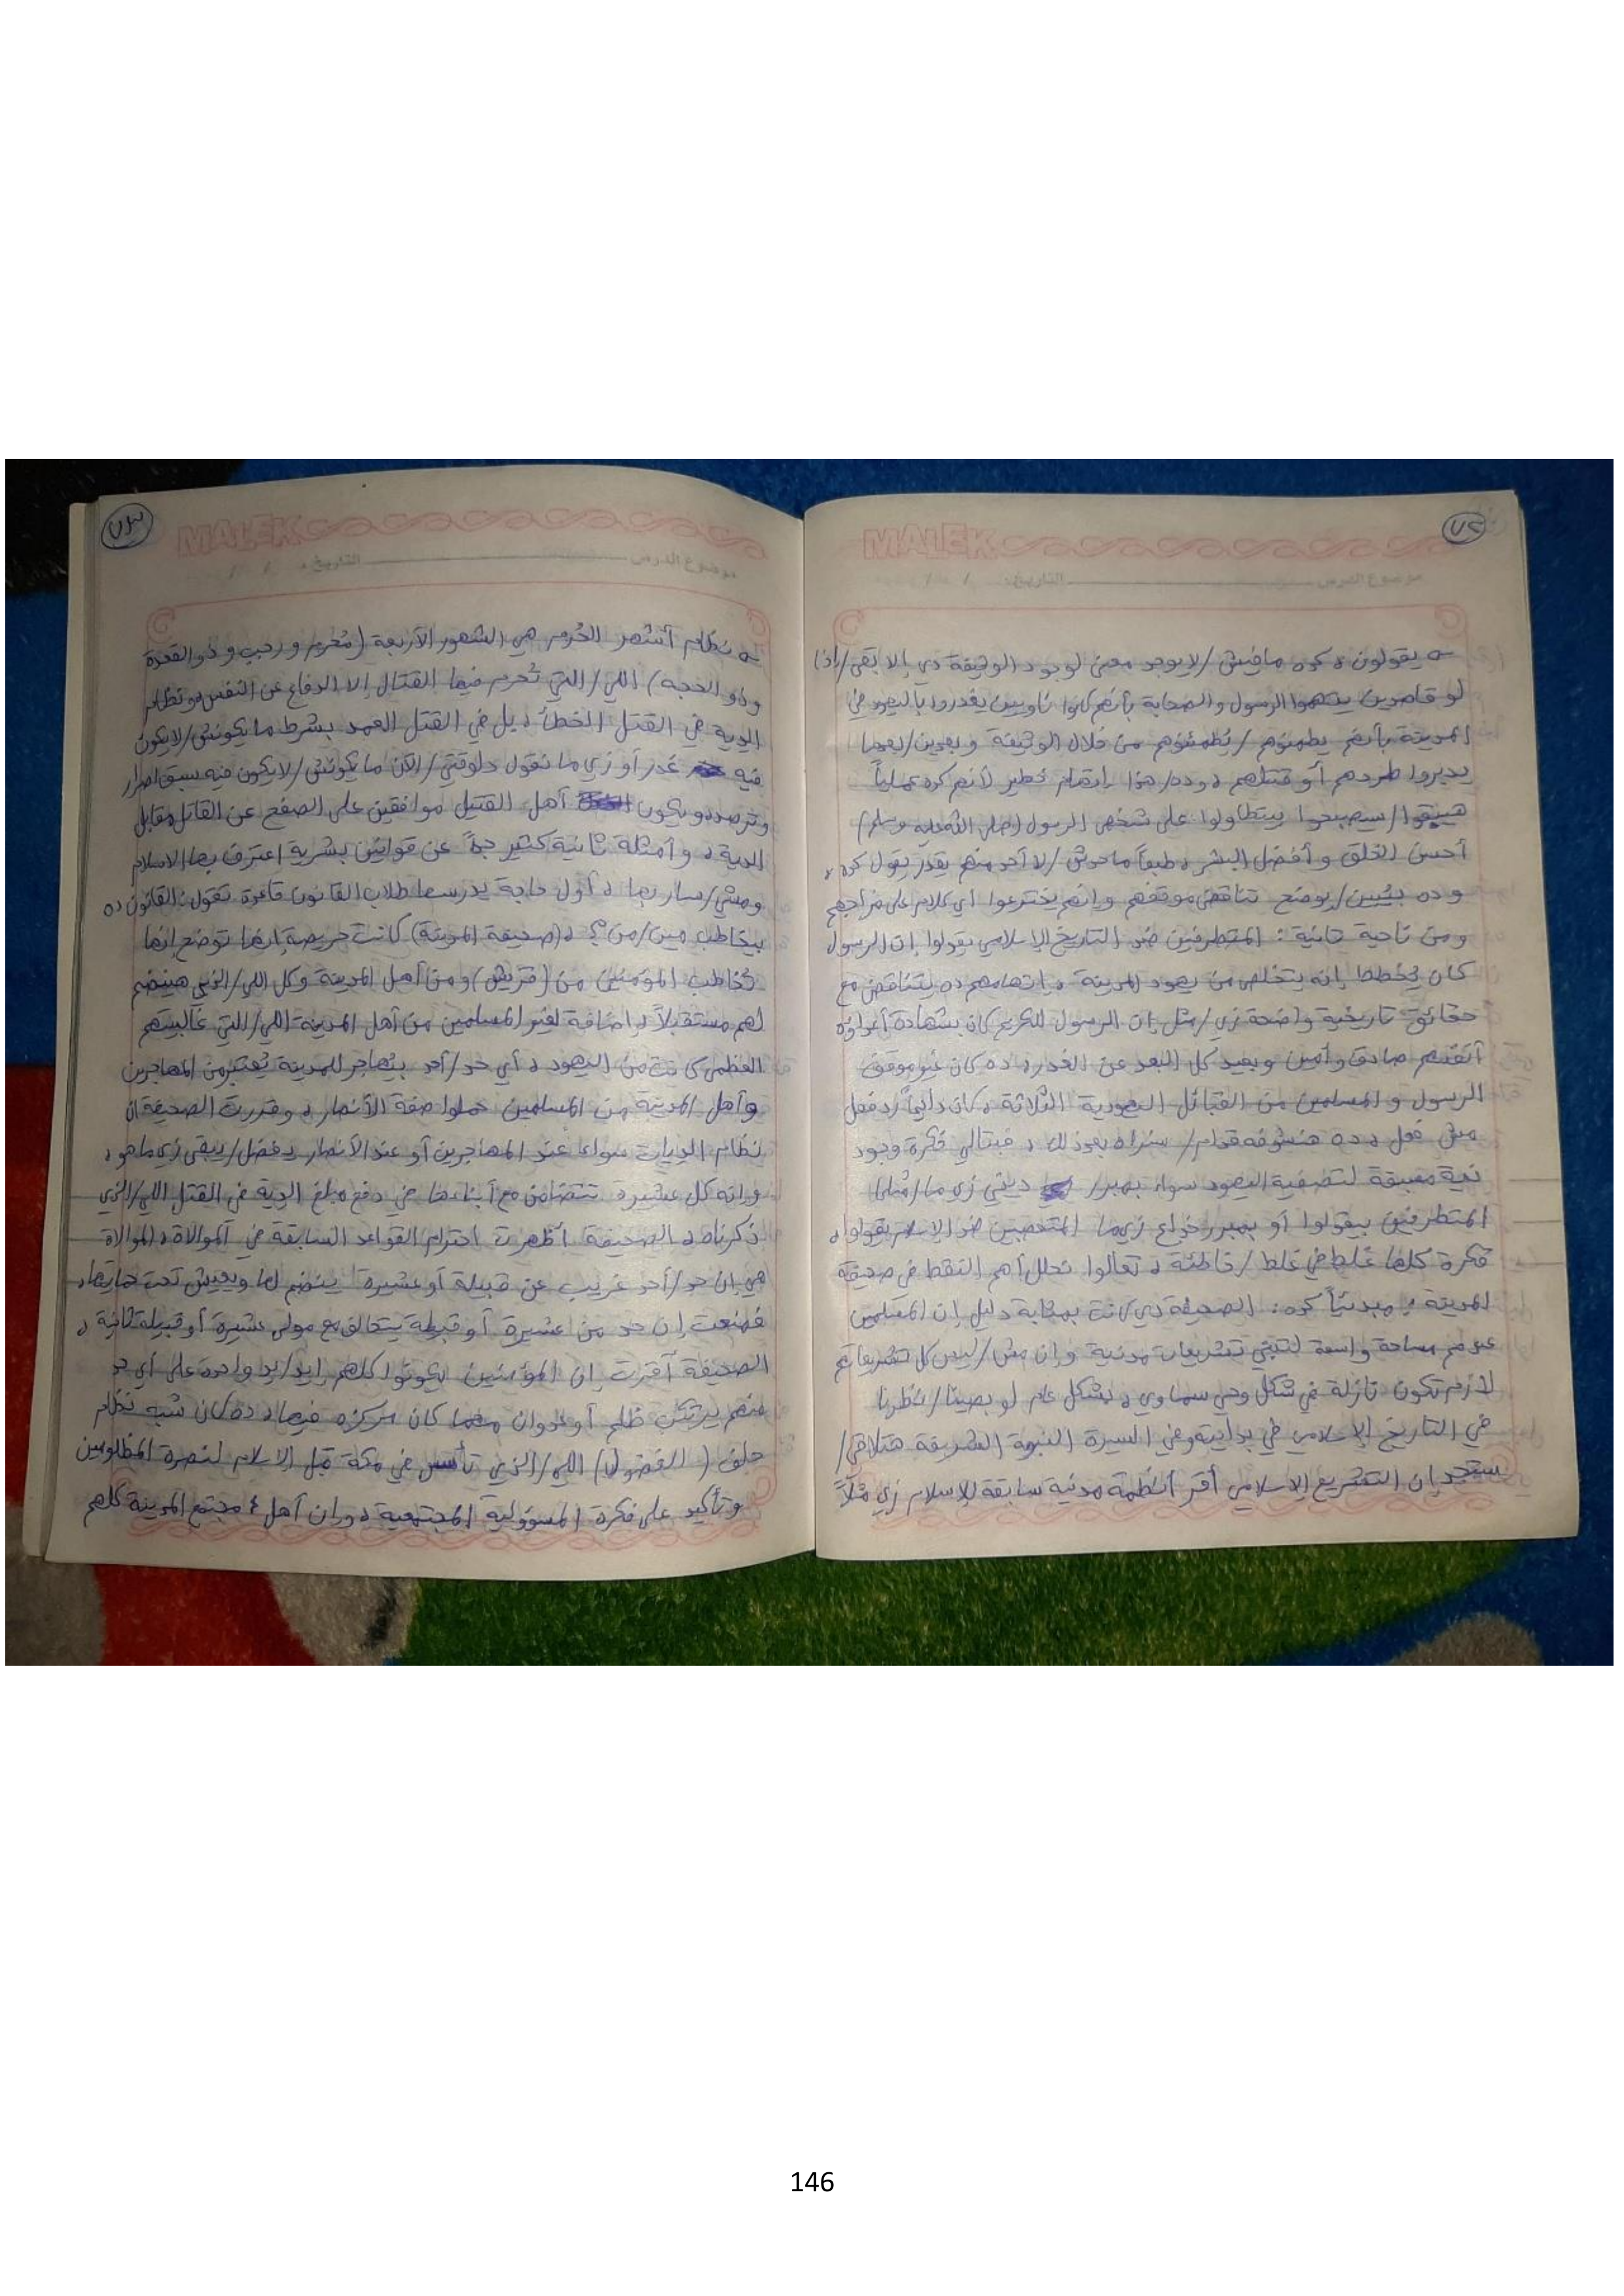 ٧٢
MALEK
موضوع الدرس التاريخ: / /
يقولون ، كده مافيش/لا يوجد معنى لوجود الوثيقة دي إلا بقى/إذا
لو قاصدين يتهموا الرسول والصحابة بأنهم كانوا ناويين يغدروا باليهود في
المدينة بأنهم يطمنوهم/يُطمئنوهم من خلال الوثيقة وبعدين/بعدها
يديروا طردهم أو قتلهم ، وده/هذا إتهام خطير لأنهم كده عملياً
هيبقوا/سيصبحوا بيتطاولوا على شخص الرسول (صلى الله عليه وسلم)
أحسن الخلق وأفضل البشر ، طبعاً ماحدش/لا أحد منهم يقدر يقول كده ،
وده بيُبين/يوضح تناقض موقفهم وإنهم يخترعوا أي كلام على مزاجهم
ومن ناحية تانية: المتطرفين ضد التاريخ الإسلامي يقولوا إن الرسول
كان يخطط إنه يتخلص من يهود المدينة ، إتهامهم ده يتناقض مع
حقائق تاريخية واضحة زي/مثل إن الرسول الكريم كان بشهادة أعداؤه
أنفسهم صادق وأمين وبعيد كل البعد عن الغدر ، ده كان غير موقف
الرسول والمسلمين من القبائل اليهودية الثلاثة ، كان دايماً رد فعل
مش فعل ، ده هنشوفه قدام/سنراه بعد ذلك ، فبالتالي فكرة وجود
نية مسبقة لتصفية اليهود سواء بمبرر ديني زي ما/مثلما
المتطرفين بيقولوا أو بمبرر خداع زي ما المتعصبين ضد الإسلام يقولوا ،
فكرة كلها غلط في غلط/خاطئة ، تعالوا نحلل أهم النقط في صحيفة
المدينة ، مبدئياً كده: الصحيفة دي كانت بمثابة دليل إن المسلمين
عندهم مساحة واسعة لتبني تشريعات مدنية وإن مش/ليس كل تشريعاتهم
لازم تكون نازلة في شكل وحي سماوي ، بشكل عام لو بصينا/نظرنا
في التاريخ الإسلامي في بدايته وفي السيرة النبوية الشريفة هنلاقي/
سنجد إن التشريع الإسلامي أقر أنظمة مدنية سابقة للإسلام زي مثلاً
٧٣
MALEK
موضوع الدرس التاريخ: / /
نظام أشهر الحُرم هي الشهور الأربعة (مُحرم ورجب وذو القعدة
وذو الحجه) اللي/التي تُحرم فيها القتال إلا الدفاع عن النفس ونظام
الدية في القتل الخطأ ، بل في القتل العمد بشرط ما يكونش/لا يكون
فيه غدر أو زي ما نقول دلوقتي/الآن ما يكونش/لا يكون فيه سبق اصرار
وترصد ويكون أهل القتيل موافقين على الصفح عن القاتل مقابل
الدية ، وأمثلة ثانية كثير جداً عن قوانين بشرية اعترف بها الاسلام
ومشي/سار بها ، أول حاجة يدرسها طلاب القانون قاعدة تقول: القانون ده
بيخاطب مين/من؟ ، (صحيفة المدينة) كانت حريصة إنها توضح إنها
تُخاطب المؤمنين من (قريش) ومن أهل المدينة وكل اللي/الذي هينضم
لهم مستقبلاً ، إضافة لغير المسلمين من أهل المدينة اللي/التي غالبيتهم
العظمى كانت من اليهود ، أي حد/أحد بيُهاجر للمدينة يُعتبر من المهاجرين
وأهل المدينة من المسلمين حملوا صفة الأنصار ، وقررت الصحيفة ان
نظام الديات سواء عند المهاجرين أو عند الأنصار يفضل/يبقى زي ما هو ،
وإنه كل عشيرة تتضامن مع أبناءها في دفع مبلغ الدية في القتل اللي/الذي
ذكرناه ، الصحيفة أظهرت احترام القواعد السابقة في الموالاة ، الموالاة
هي إن حد/أحد غريب عن قبيلة أو عشيرة ينضم لها ويعيش تحت حمايتها ،
فمنعت إن حد من عشيرة أو قبيلة يتحالف مع مولى عشيرة أو قبيلة ثانية ،
الصحيفة أقرت إن المؤمنين يكونوا كلهم إيد/يد واحدة على أي حد
منهم يرتكب ظلم أو عدوان مهما كان مركزه فيها ، ده كان شبه نظام
حلف (الفضول) اللي/الذي تأسس في مكة قبل الاسلام لنصرة المظلومين
وتأكيد على فكرة المسؤولية المجتمعية ، وإن أهل مجتمع المدينة كلهم
146